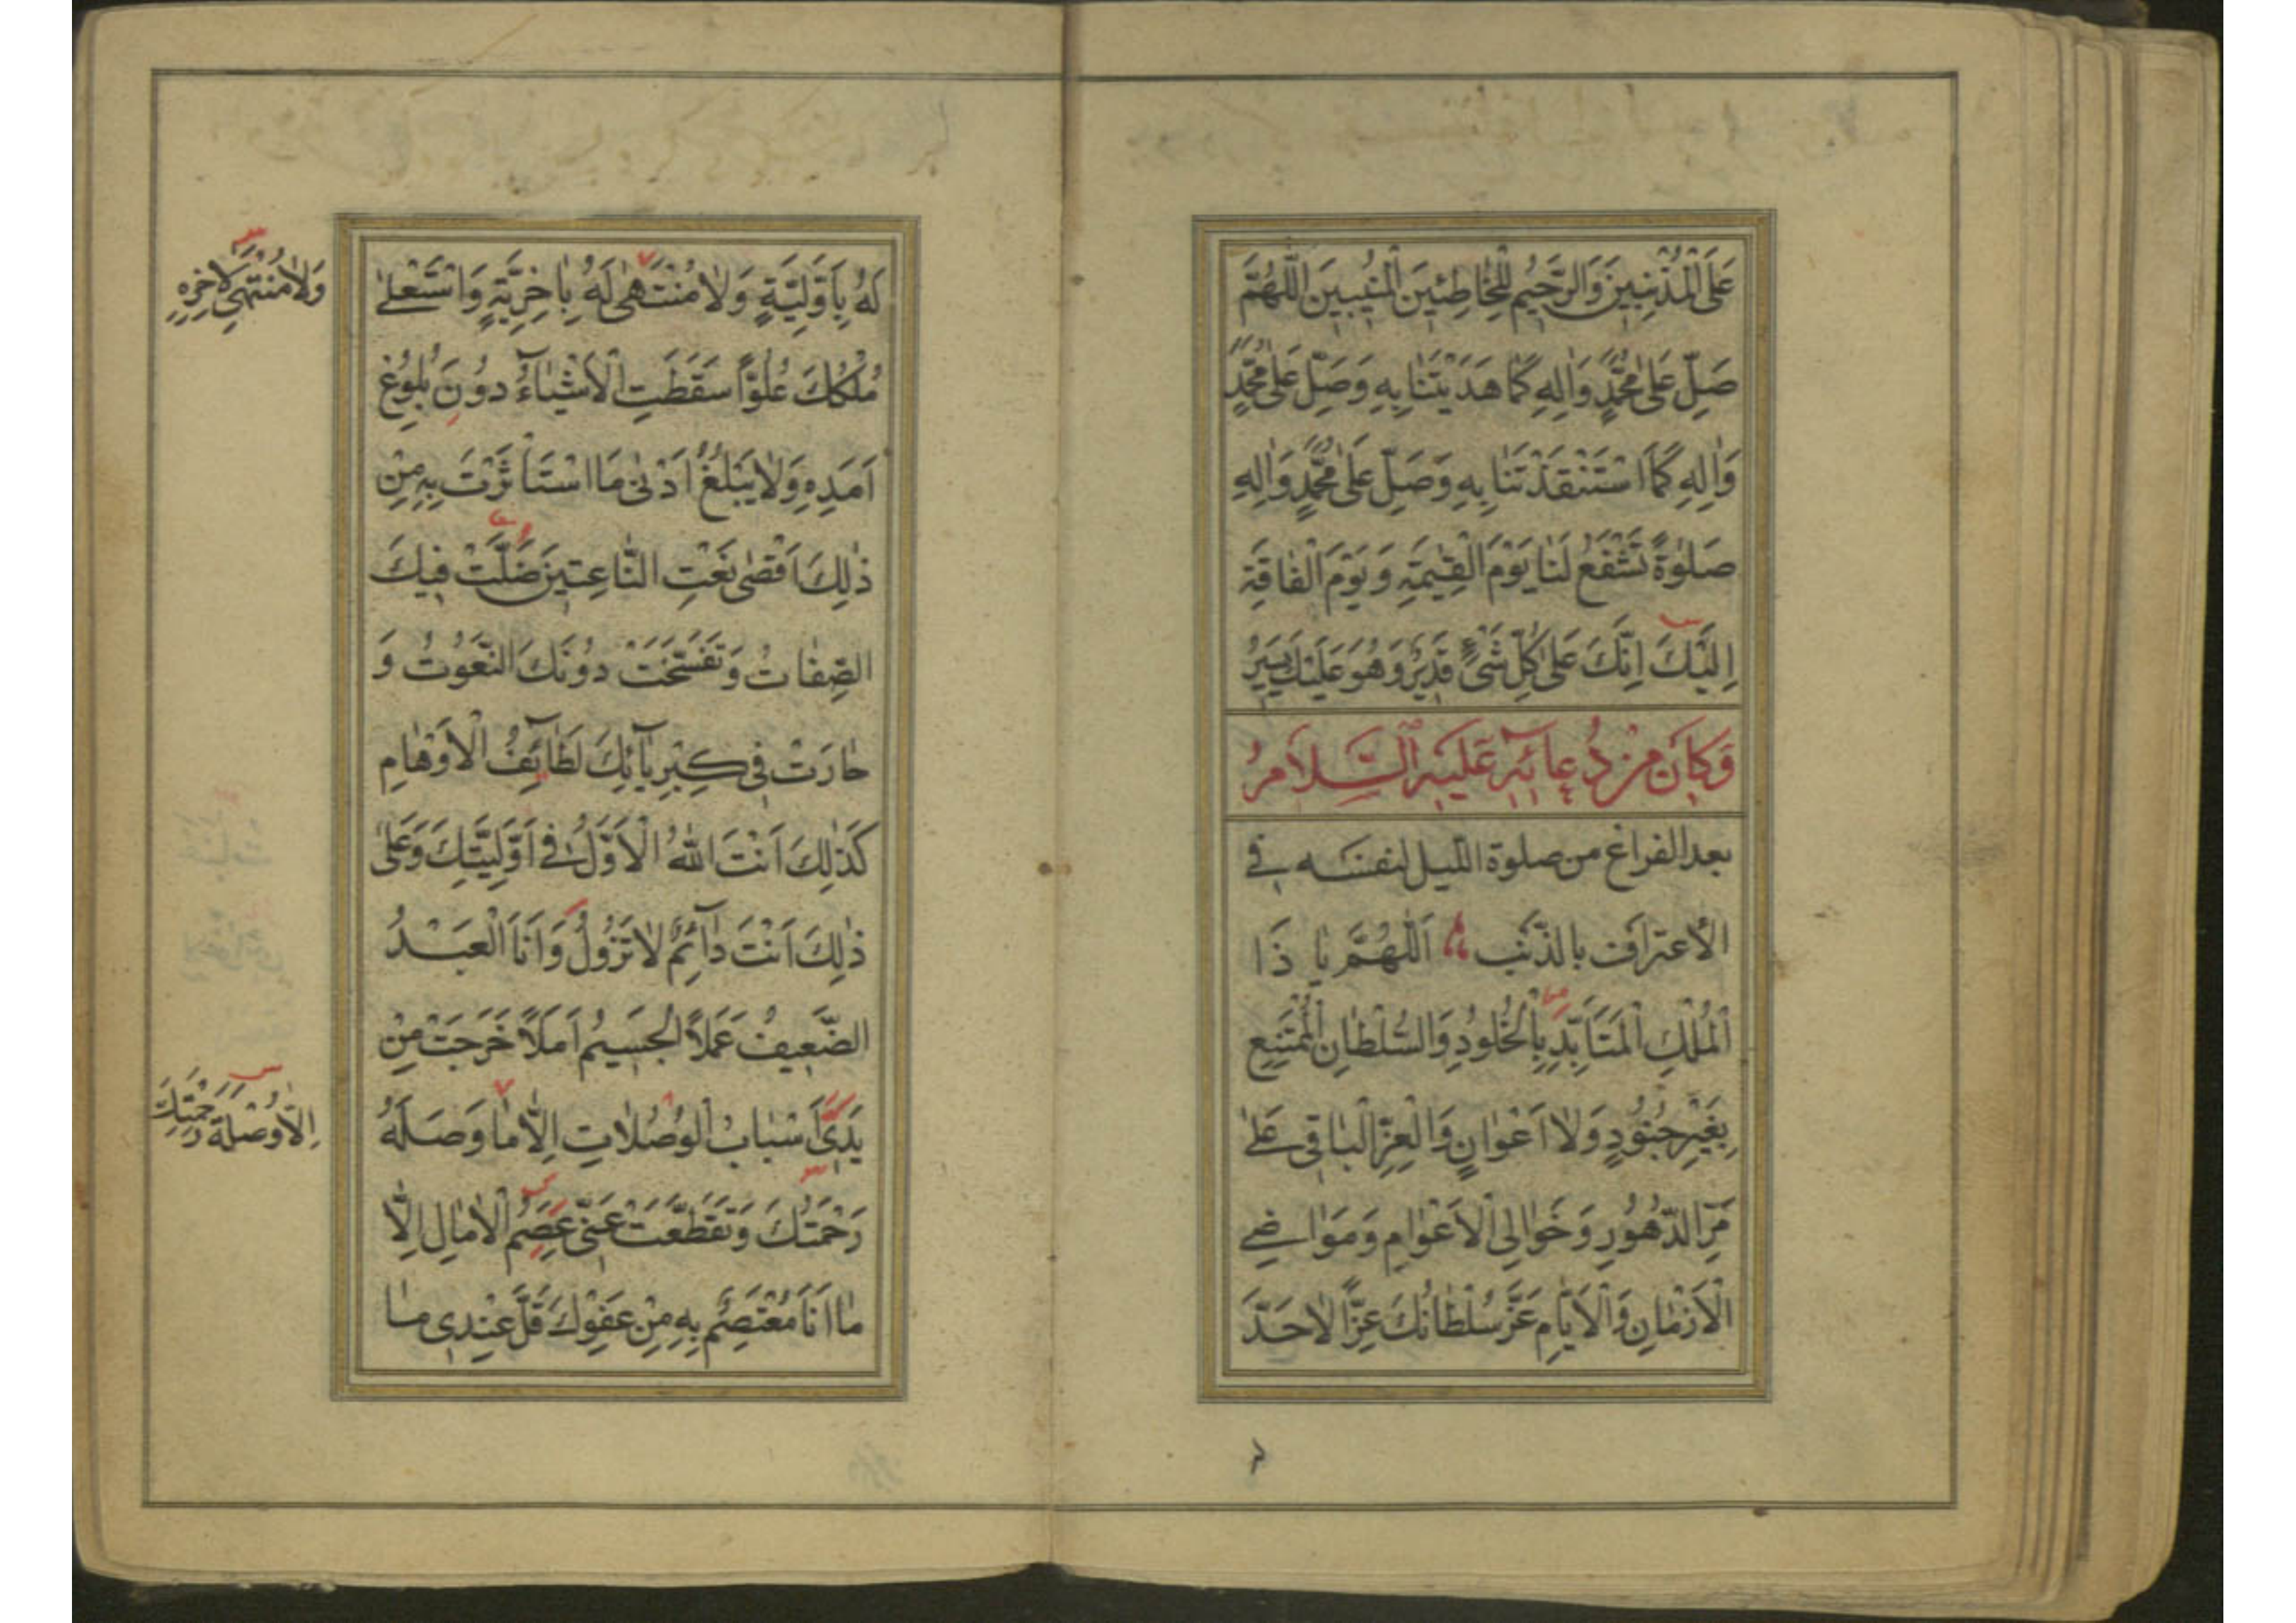 عَلَى الْمُذْنِبِينَ وَالرَّحِيمُ لِلْخَاطِئِينَ الْمُنِيبِينَ اللَّهُمَّ
صَلِّ عَلَى مُحَمَّدٍ وَاٰلِهِ كَمَا هَدَيْتَنَا بِهِ وَصَلِّ عَلَى مُحَمَّدٍ
وَاٰلِهِ كَمَا اسْتَنْقَذْتَنَا بِهِ وَصَلِّ عَلَى مُحَمَّدٍ وَاٰلِهِ
صَلٰوةً تَشْفَعُ لَنَا يَوْمَ الْقِيٰمَةِ وَيَوْمَ الْفَاقَةِ
اِلَيْكَ اِنَّكَ عَلٰى كُلِّ شَىْءٍ قَدِيرٌ وَهُوَ عَلَيْكَ يَسِيرٌ
وَكَانَ مِنْ دُعَائِهِ عَلَيْهِ السَّلَامُ
بعد الفراغ من صلوة الليل لنفسه في
الاعتراف بالذنب اَللّٰهُمَّ يَا ذَا
الْمُلْكِ الْمُتَاَبِّدِ بِالْخُلُودِ وَالسُّلْطَانِ الْمُمْتَنِعِ
بِغَيْرِ جُنُودٍ وَلَا اَعْوَانٍ وَالْعِزِّ الْبَاقِى عَلٰى
مَرِّ الدُّهُورِ وَخَوَالِى الْاَعْوَامِ وَمَوَاضِى
الْاَزْمَانِ وَالْاَيَّامِ عَزَّ سُلْطَانُكَ عِزًّا لَا حَدَّ
لَهُ بِاَوَّلِيَّةٍ وَلَا مُنْتَهٰى لَهُ بِاٰخِرِيَّةٍ وَاسْتَعْلٰى
وَلَا مُنْتَهٰى لِاٰخِرِهِ
مُلْكُكَ عُلُوًّا سَقَطَتِ الْاَشْيَاۤءُ دُونَ بُلُوغِ
اَمَدِهِ وَلَا يَبْلُغُ اَدْنٰى مَا اسْتَاْثَرْتَ بِهِ مِنْ
ذٰلِكَ اَقْصٰى نَعْتِ النَّاعِتِينَ ضَلَّتْ فِيكَ
الصِّفَاتُ وَتَفَسَّخَتْ دُونَكَ النُّعُوتُ وَ
حَارَتْ فِى كِبْرِيَاۤئِكَ لَطَاۤئِفُ الْاَوْهَامِ
كَذٰلِكَ اَنْتَ اللّٰهُ الْاَوَّلُ فِى اَوَّلِيَّتِكَ وَعَلٰى
ذٰلِكَ اَنْتَ دَاۤئِمٌ لَا تَزُولُ وَاَنَا الْعَبْدُ
الضَّعِيفُ عَمَلًا الْجَسِيمُ اَمَلًا خَرَجَتْ مِنْ
يَدِى اَسْبَابُ الْوُصُلَاتِ اِلَّا مَا وَصَلَهُ
اِلَّا وُصْلَةَ رَحْمَتِكَ
رَحْمَتُكَ وَتَقَطَّعَتْ عَنِّى عِصَمُ الْاٰمَالِ اِلَّا
مَا اَنَا مُعْتَصِمٌ بِهِ مِنْ عَفْوِكَ قَلَّ عِنْدِى مَا